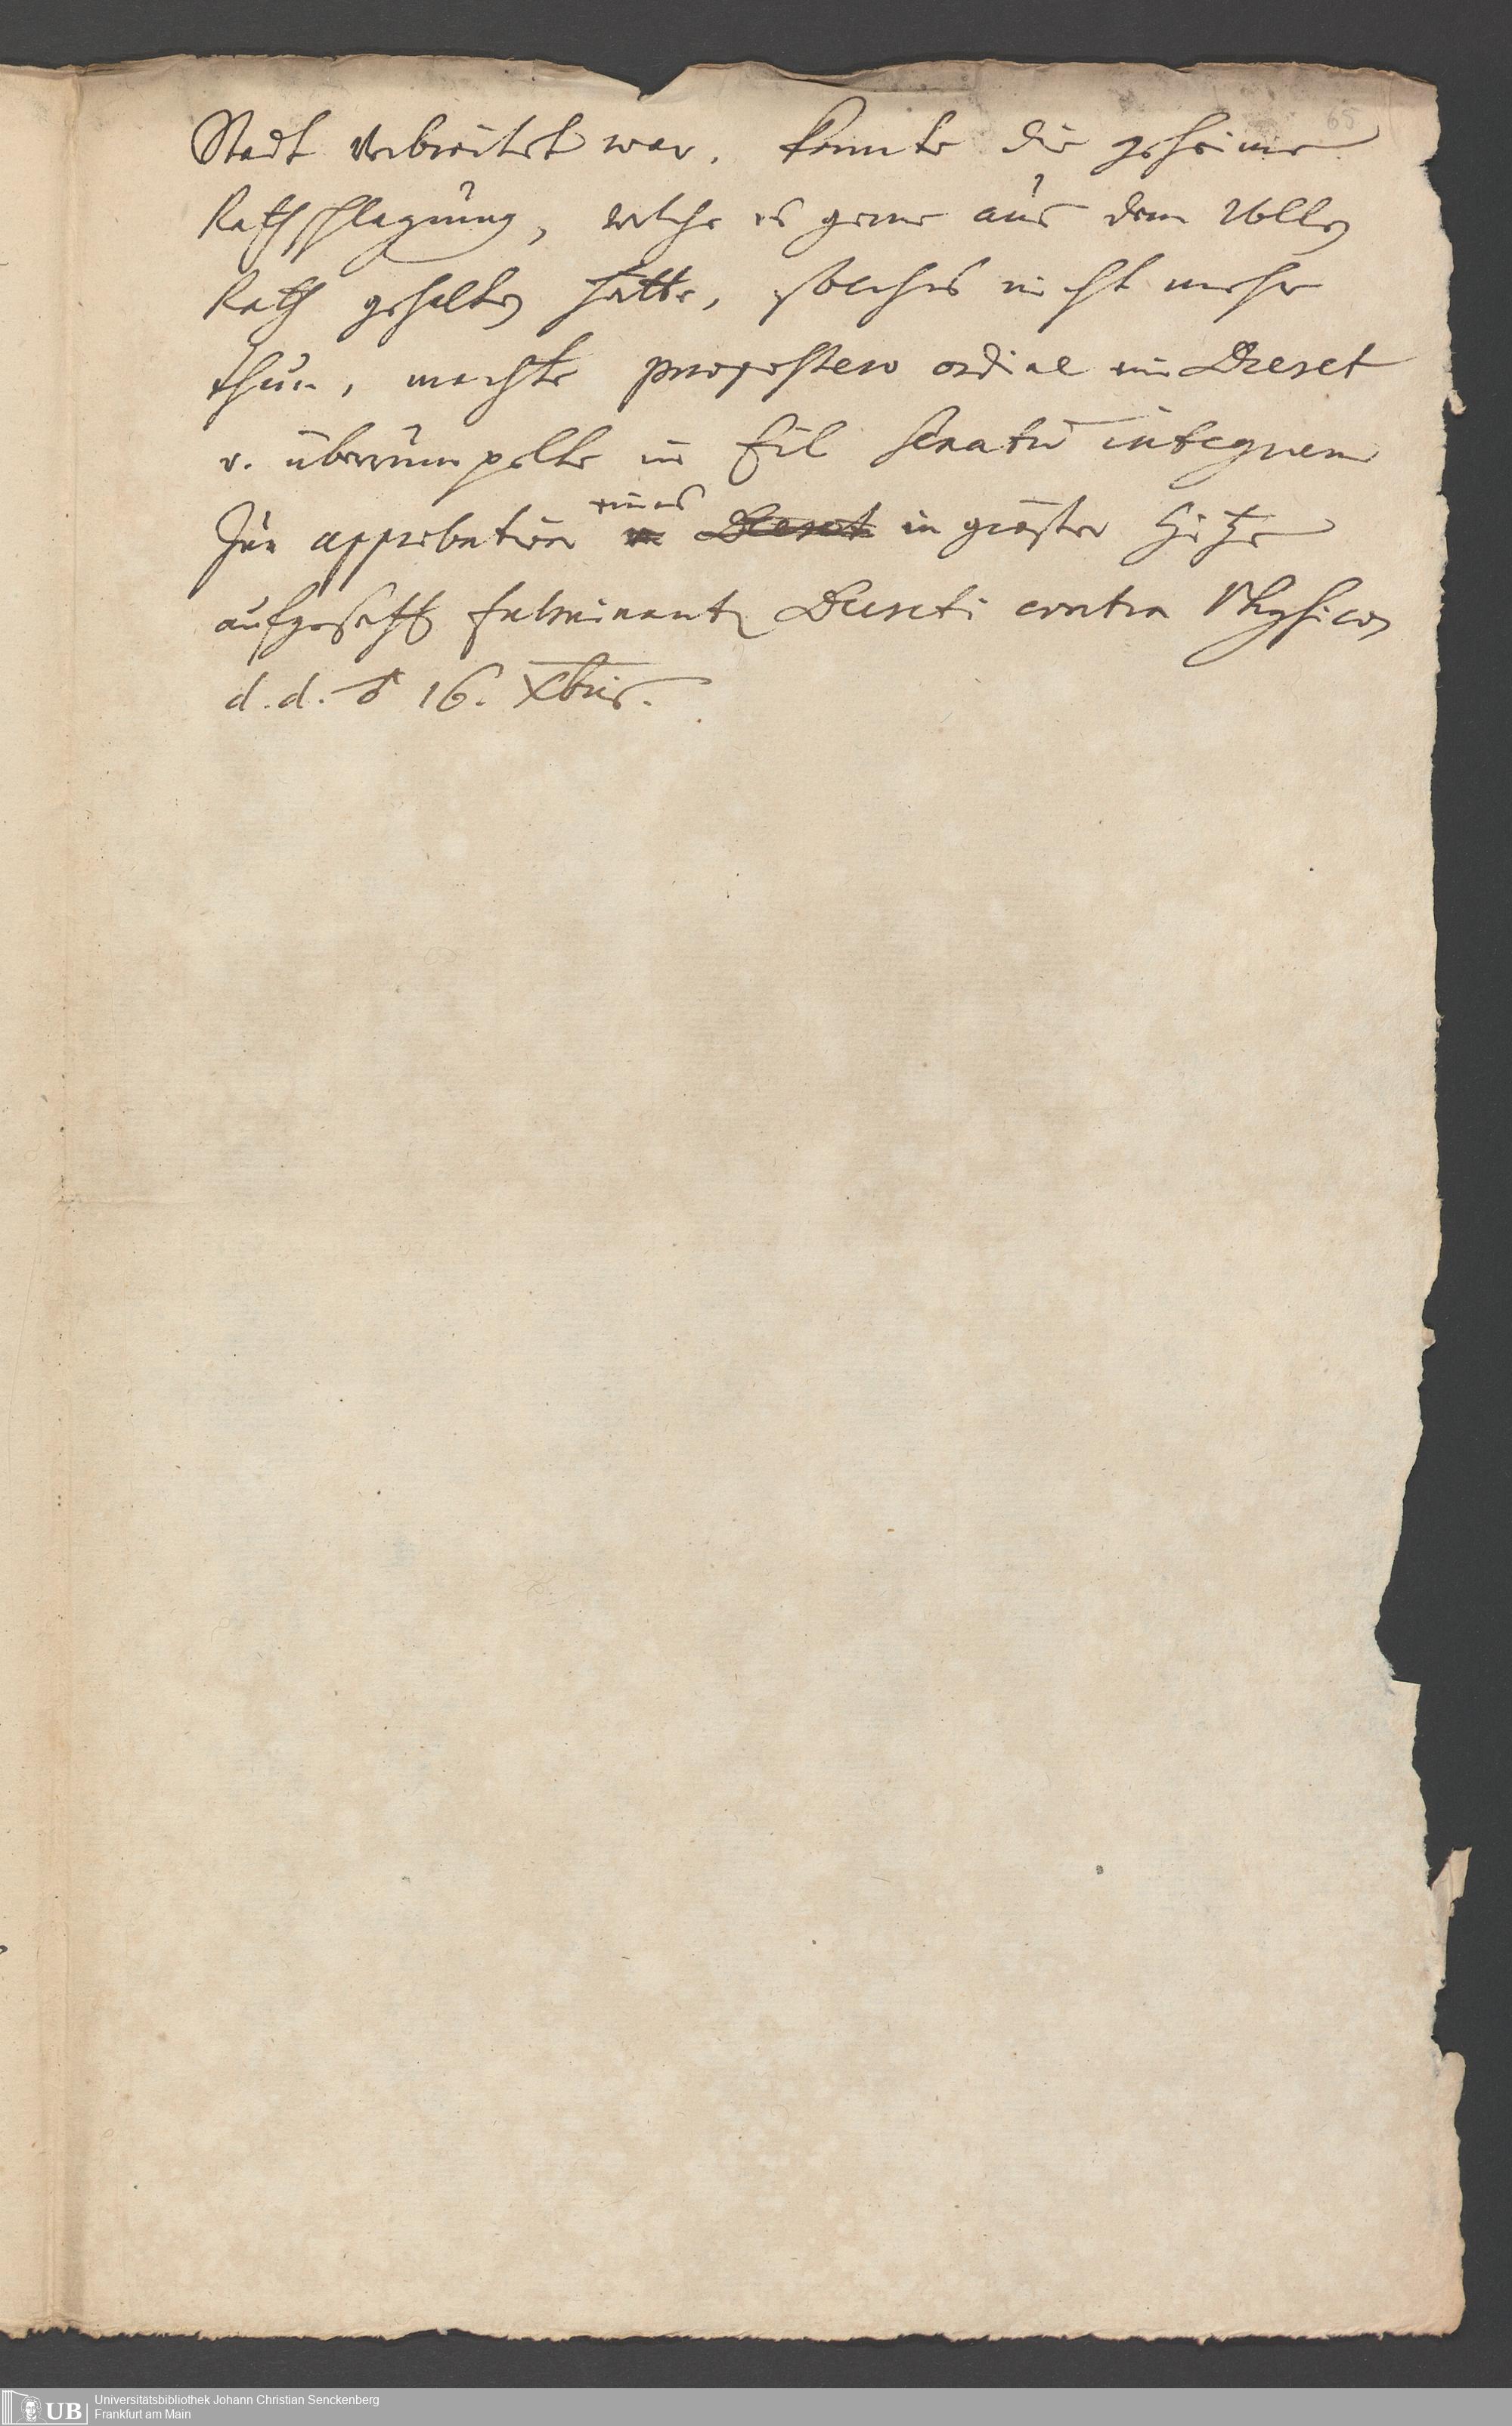 65
Stadt verbreitet war, konnte die geheime
Rathschlagung, welche es gerne aus dem Vollen
Rath gehalten hätte, solches nicht mehr
thun, machte ein Decret
v. überrumpelte in Eil Senatū integrum
zur approbation eines Decret in gröster Hitze
aufgesetzten fulminanten Decreti contra Physicos
d. d. ♂ 16. Xbris.
UB Universitätsbibliothek Johann Christian Senckenberg
Frankfurt am Main